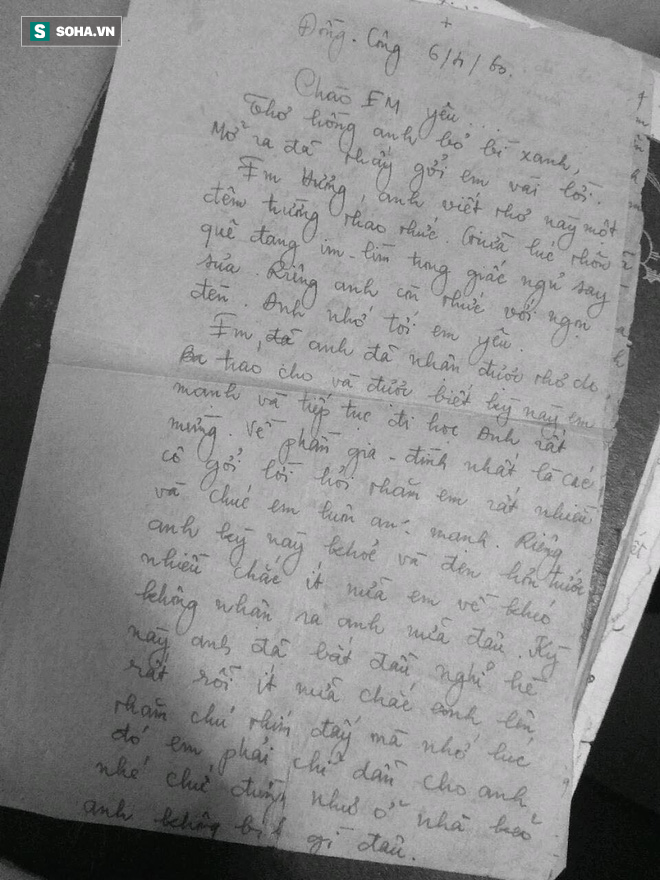 SOHA.VN
Đông. Công 6/4/60.
Chào EM yêu...
Thơ hồng anh bỏ bì xanh,
Mở ra đã thấy gởi em vài lời.
Em Hương, anh viết thơ này một
đêm trường thao thức. Giữa lúc thôn
quê đang im-lìm trong giấc ngủ say
sưa. Riêng anh còn thức với ngọn
đèn. Anh nhớ tới em yêu.
Em, đã anh đã nhận được thơ do
Ba trao cho và được biết kỳ này em
mạnh và tiếp tục đi học Anh rất
mừng. Về phần gia-đình nhất là các
cô gởi lời hỏi thăm em rất nhiều
và chúc em luôn an mạnh. Riêng
anh kỳ này khỏe và đen hơn trước
nhiều chắc ít nữa em về khó
không nhận ra anh nữa đâu. Kỳ
này anh đã bắt đầu nghỉ hè
rất rỗi ít nữa chắc anh lên
thăm chú thím đấy mà nhớ lúc
đó em phải chỉ dẫn cho anh
nhé chứ đừng như ở nhà
anh không gì đâu.